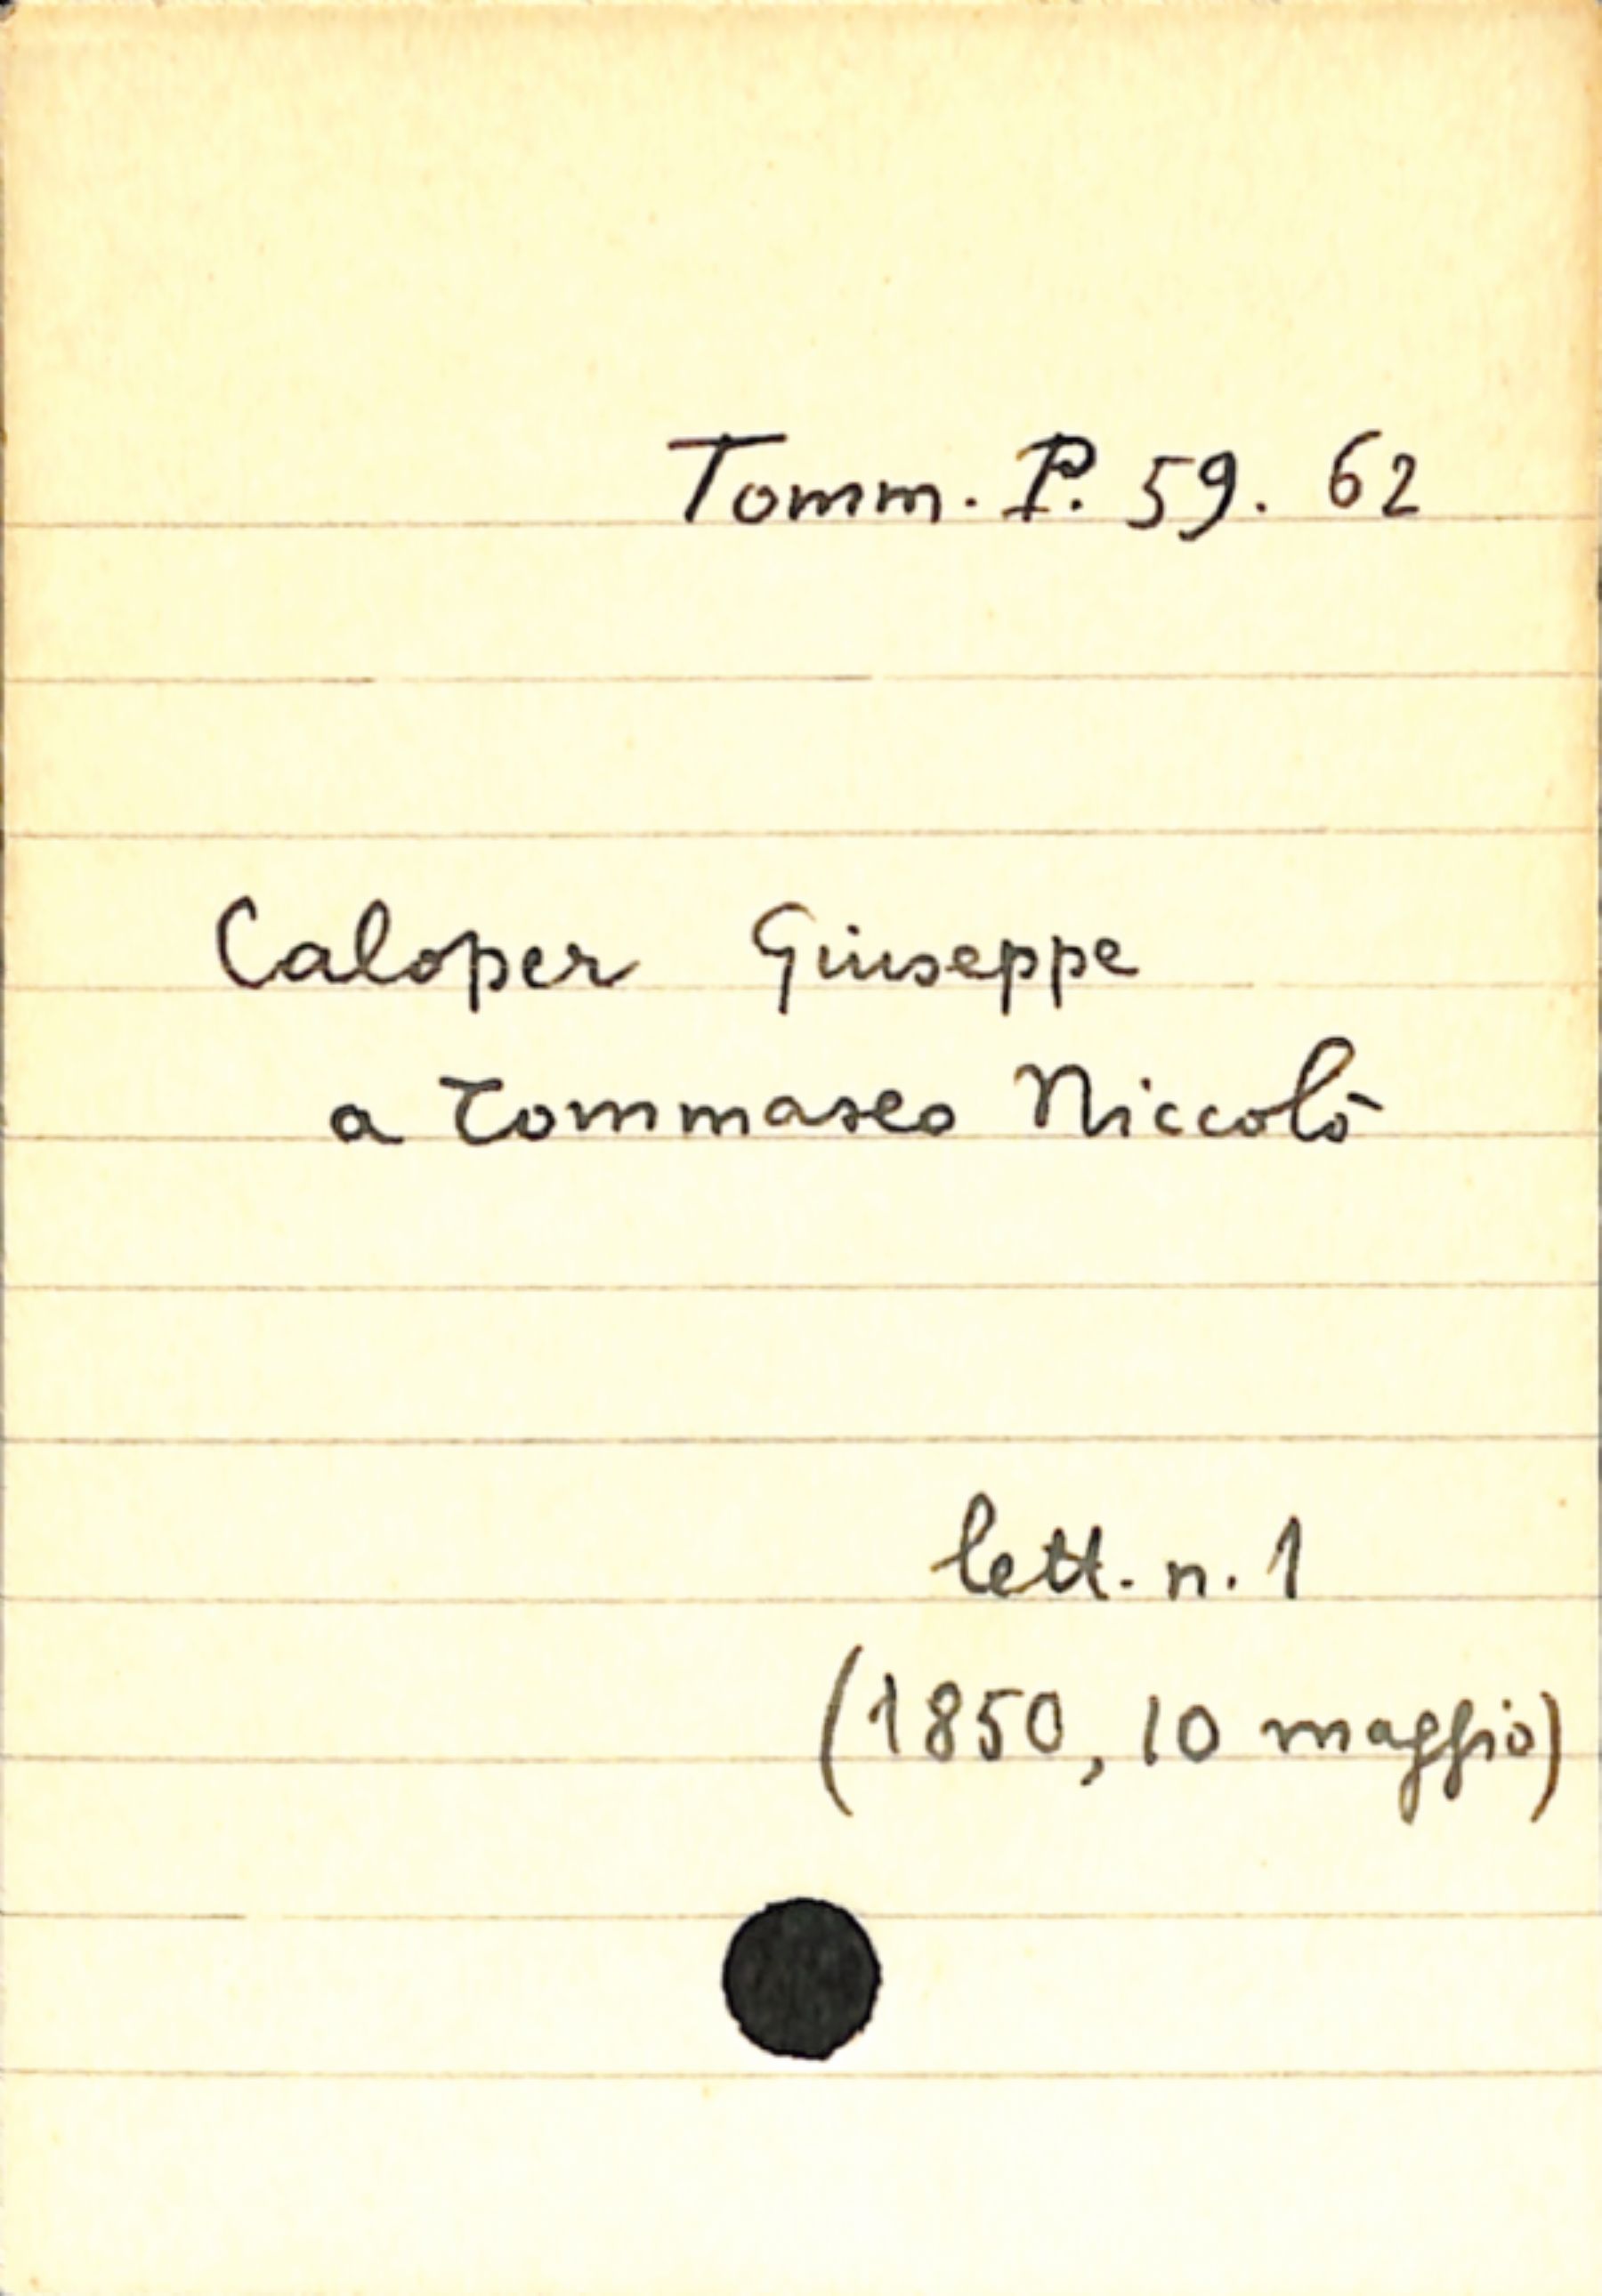 Tomm. P. 59. 62
Caloper Giuseppe
a Tommaseo Niccolò
lett. n. 1
(1850, 10 maggio)